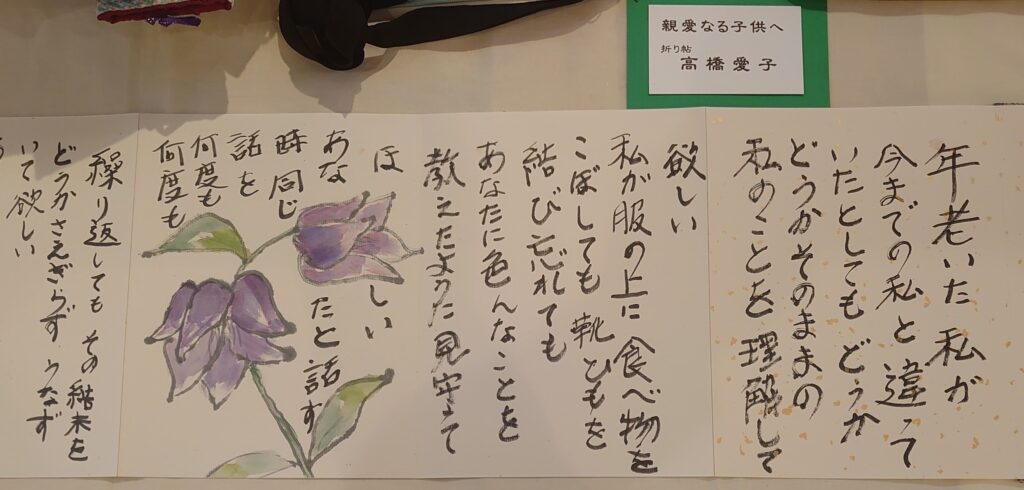 親愛なる子供へ
折り帖
高橋愛子
年老いた私が
今までの私と違って
いたとしても どうか
どうかそのままの
私のことを理解して
欲しい
私が服の上に食べ物を
こぼしても 靴ひもを
結び忘れても
あなたに色んなことを
教えたように見守って
ほしい
あなたと話す
時同じ
話を
何度も
何度も
繰り返しても その結末を
どうかさえぎらず うなず
いて欲しい